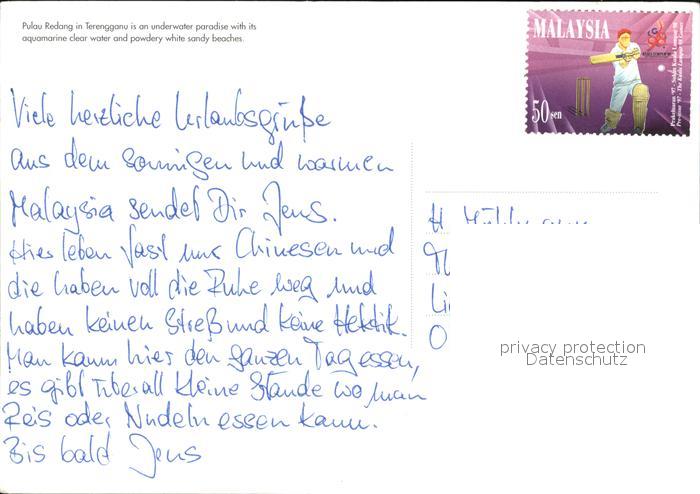 Pulau Redang in Terengganu is an underwater paradise with its
aquamarine clear water and powdery white sandy beaches.
MALAYSIA
50 sen
Viele herzliche Urlaubsgrüße
aus dem sonnigen und warmen
Malaysia sendet Dir Jens.
Hier leben fast nur Chinesen und
die haben voll die Ruhe weg und
haben keinen Streß und keine Hektik.
Man kann hier den ganzen Tag essen,
es gibt überall kleine Stände wo man
Reis oder Nudeln essen kann.
Bis bald Jens
H
Li
O
privacy protection
Datenschutz